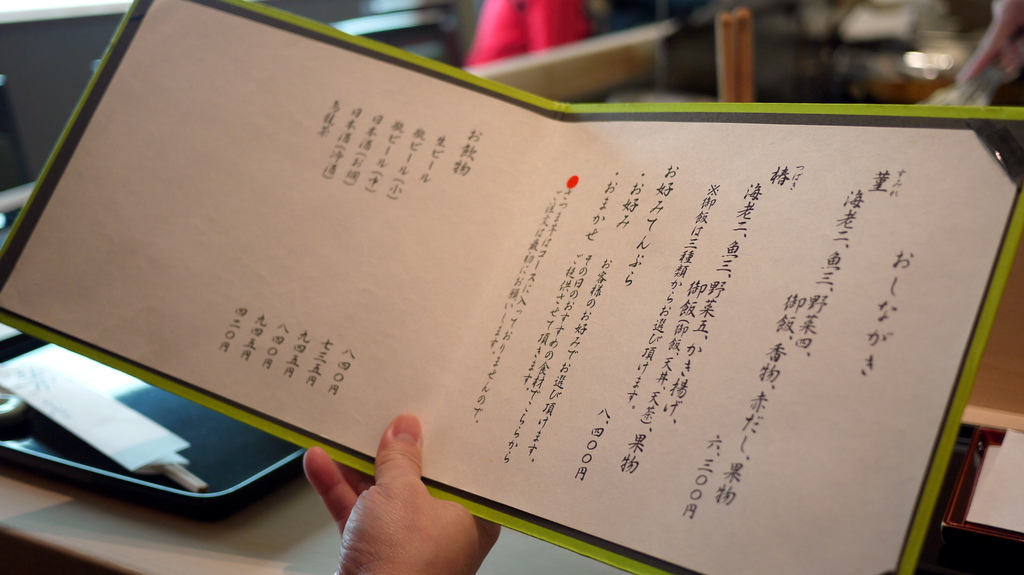 おしながき
菫 すみれ
海老二、魚三、野菜四、
御飯、香物、赤だし、果物
六、三〇〇円
椿 つばき
海老二、魚三、野菜五、かき揚げ、
御飯(御飯、天丼、天茶)、果物
※御飯は三種類からお選び頂けます。
八、四〇〇円
お好みてんぷら
・お好み
お客様のお好みでお選び頂けます。
・おまかせ
その日のおすすめの食材で、こちらから
ご提供させて頂きます。
さつま芋はコースに入っておりませんので、
ご注文は最初にお願いします。
お飲物
生ビール
八四〇円
瓶ビール
七三五円
瓶ビール(小)
九四五円
日本酒(冷)
八四〇円
日本酒(お燗)
九四五円
烏龍茶
四二〇円